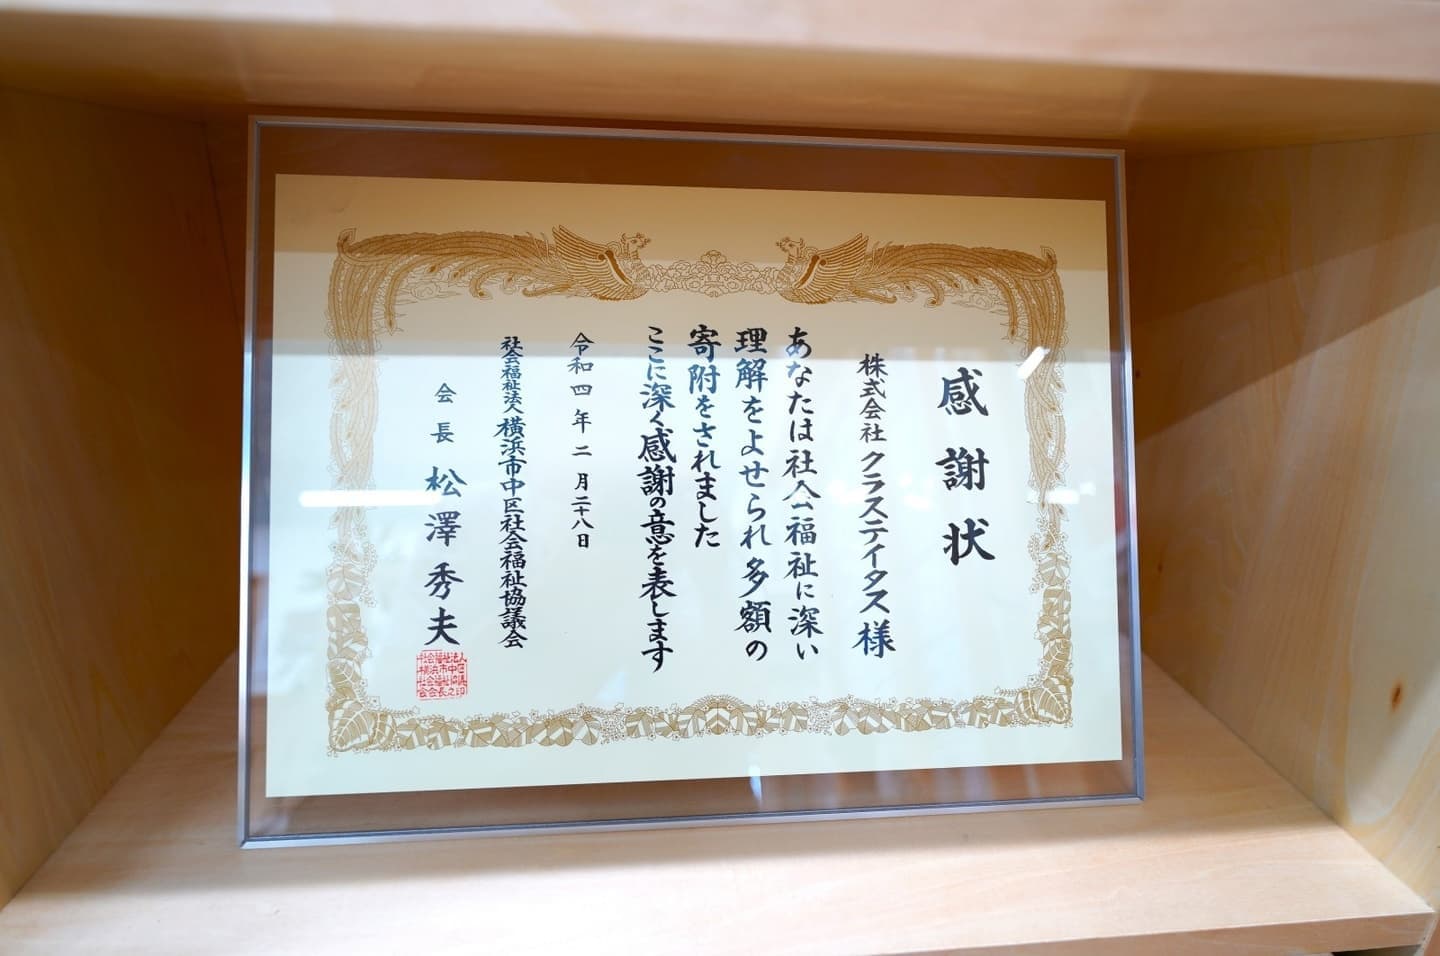 感謝状
株式会社クラスティタス様
あなたは社会福祉に深い
理解をよせられ多額の
寄附をされました
ここに深く感謝の意を表します
令和四年二月二十八日
社会福祉法人横浜市中区社会福祉協議会
会長 松澤秀夫